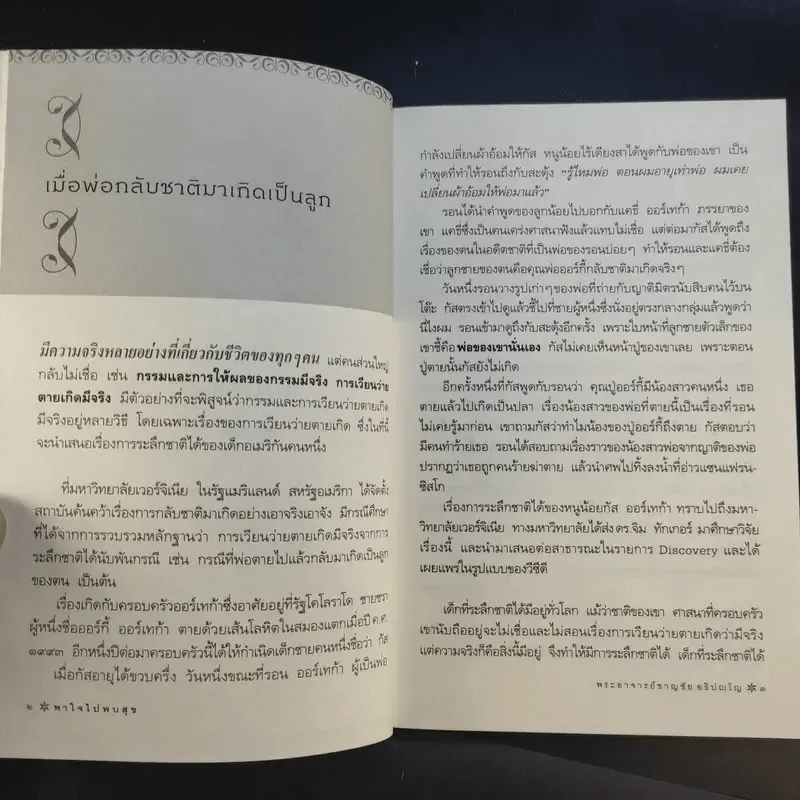 เมื่อพ่อกลับชาติมาเกิดเป็นลูก
มีความจริงหลายอย่างที่เกี่ยวกับชีวิตของทุกๆคน แต่คนส่วนใหญ่
กลับไม่เชื่อ เช่น กรรมและการให้ผลของกรรมมีจริง การเวียนว่าย
ตายเกิดมีจริง มีตัวอย่างที่จะพิสูจน์ว่ากรรมและการเวียนว่ายตายเกิด
มีจริงอยู่หลายวิธี โดยเฉพาะเรื่องของการเวียนว่ายตายเกิด ซึ่งในที่นี้
จะนำเสนอเรื่องการระลึกชาติได้ของเด็กอเมริกันคนหนึ่ง
ที่มหาวิทยาลัยเวอร์จิเนีย ในรัฐแมริแลนด์ สหรัฐอเมริกา ได้จัดตั้ง
สถาบันค้นคว้าเรื่องการกลับชาติมาเกิดอย่างเอาจริงเอาจัง มีกรณีศึกษา
ที่ได้จากการรวบรวมหลักฐานว่า การเวียนว่ายตายเกิดมีจริงจากการ
ระลึกชาติได้นับพันกรณี เช่น กรณีที่พ่อตายไปแล้วกลับมาเกิดเป็นลูก
ของตน เป็นต้น
เรื่องเกิดกับครอบครัวออร์เทก้าซึ่งอาศัยอยู่ที่รัฐโคโลราโด ชายชรา
ผู้หนึ่งชื่อออร์กี้ ออร์เทก้า ตายด้วยเส้นโลหิตในสมองแตกเมื่อปี ค.ศ.
๑๙๙๓ อีกหนึ่งปีต่อมาครอบครัวนี้ได้ให้กำเนิดเด็กชายคนหนึ่งชื่อว่า กัส
เมื่อกัสอายุได้ขวบครึ่ง วันหนึ่งขณะที่รอน ออร์เทก้า ผู้เป็นพ่อ
๒ ✲ พาใจไปพบสุข
กำลังเปลี่ยนผ้าอ้อมให้กัส หนูน้อยไร้เดียงสาได้พูดกับพ่อของเขา เป็น
คำพูดที่ทำให้รอนถึงกับสะดุ้ง “รู้ไหมพ่อ ตอนผมอายุเท่าพ่อ ผมเคย
เปลี่ยนผ้าอ้อมให้พ่อมาแล้ว”
รอนได้นำคำพูดของลูกน้อยไปบอกกับแคธี่ ออร์เทก้า ภรรยาของ
เขา แคธี่ซึ่งเป็นคนเคร่งศาสนาฟังแล้วแทบไม่เชื่อ แต่ต่อมากัสได้พูดถึง
เรื่องของตนในอดีตชาติที่เป็นพ่อของรอนบ่อยๆ ทำให้รอนและแคธี่ต้อง
เชื่อว่าลูกชายของตนคือคุณพ่อออร์กี้กลับชาติมาเกิดจริงๆ
วันหนึ่งรอนวางรูปเก่าๆของพ่อที่ถ่ายกับญาติมิตรนับสิบคนไว้บน
โต๊ะ กัสตรงเข้าไปดูแล้วชี้ไปที่ชายผู้หนึ่งซึ่งนั่งอยู่ตรงกลางกลุ่มแล้วพูดว่า
นี่ไงผม รอนเข้ามาดูถึงกับสะดุ้งอีกครั้ง เพราะใบหน้าที่ลูกชายตัวเล็กของ
เขาชี้คือพ่อของเขานั่นเอง กัสไม่เคยเห็นหน้าปู่ของเขาเลย เพราะตอน
ปู่ตายนั้นกัสยังไม่เกิด
อีกครั้งหนึ่งที่กัสพูดกับรอนว่า คุณปู่ออร์กี้มีน้องสาวคนหนึ่ง เธอ
ตายแล้วไปเกิดเป็นปลา เรื่องน้องสาวของพ่อที่ตายนี้เป็นเรื่องที่รอน
ไม่เคยรู้มาก่อน เขาถามกัสว่าทำไมน้องของปู่ออร์กี้ถึงตาย กัสตอบว่า
มีคนทำร้ายเธอ รอนได้สอบถามเรื่องราวของน้องสาวพ่อจากญาติของพ่อ
ปรากฏว่าเธอถูกคนร้ายฆ่าตาย แล้วนำศพไปทิ้งลงน้ำที่อ่าวแซนแฟรน-
ซิสโก
เรื่องการระลึกชาติได้ของหนูน้อยกัส ออร์เทก้า ทราบไปถึงมหา-
วิทยาลัยเวอร์จิเนีย ทางมหาวิทยาลัยได้ส่ง ดร.จิม ทักเกอร์ มาศึกษาวิจัย
เรื่องนี้ และนำมาเสนอต่อสาธารณะในรายการ Discovery และได้
เผยแพร่ในรูปแบบของวีซีดี
เด็กที่ระลึกชาติได้มีอยู่ทั่วโลก แม้ว่าชาติของเขา ศาสนาที่ครอบครัว
เขานับถืออยู่จะไม่เชื่อและไม่สอนเรื่องการเวียนว่ายตายเกิดว่ามีจริง
แต่ความจริงก็คือสิ่งนี้มีอยู่ จึงทำให้มีการระลึกชาติได้ เด็กที่ระลึกชาติได้
พระอาจารย์ชาญชัย อธิปญฺโญ ✲ ๓